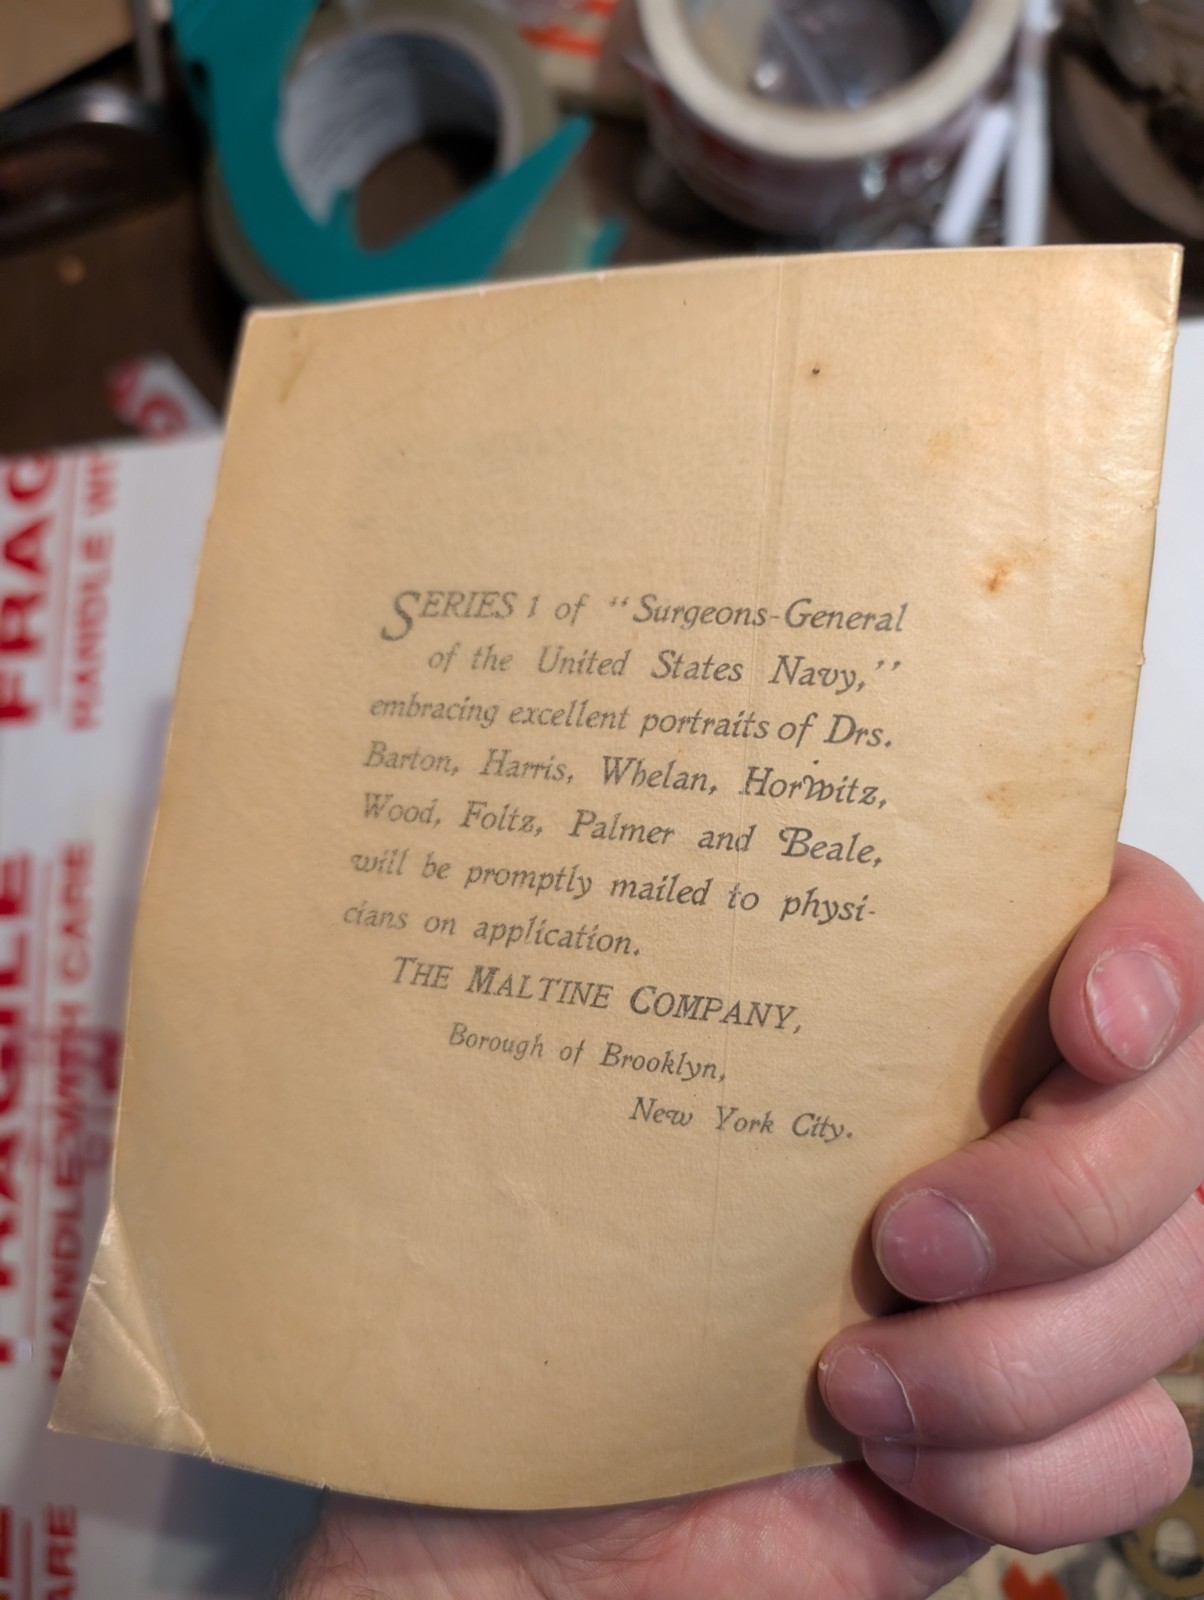 SERIES 1 of “Surgeons-General
of the United States Navy,”
embracing excellent portraits of Drs.
Barton, Harris, Whelan, Horwitz,
Wood, Foltz, Palmer and Beale,
will be promptly mailed to physi-
cians on application.
THE MALTINE COMPANY,
Borough of Brooklyn,
New York City.
FRAG
HANDLE WI
FRAGILE
HANDLE WITH CARE